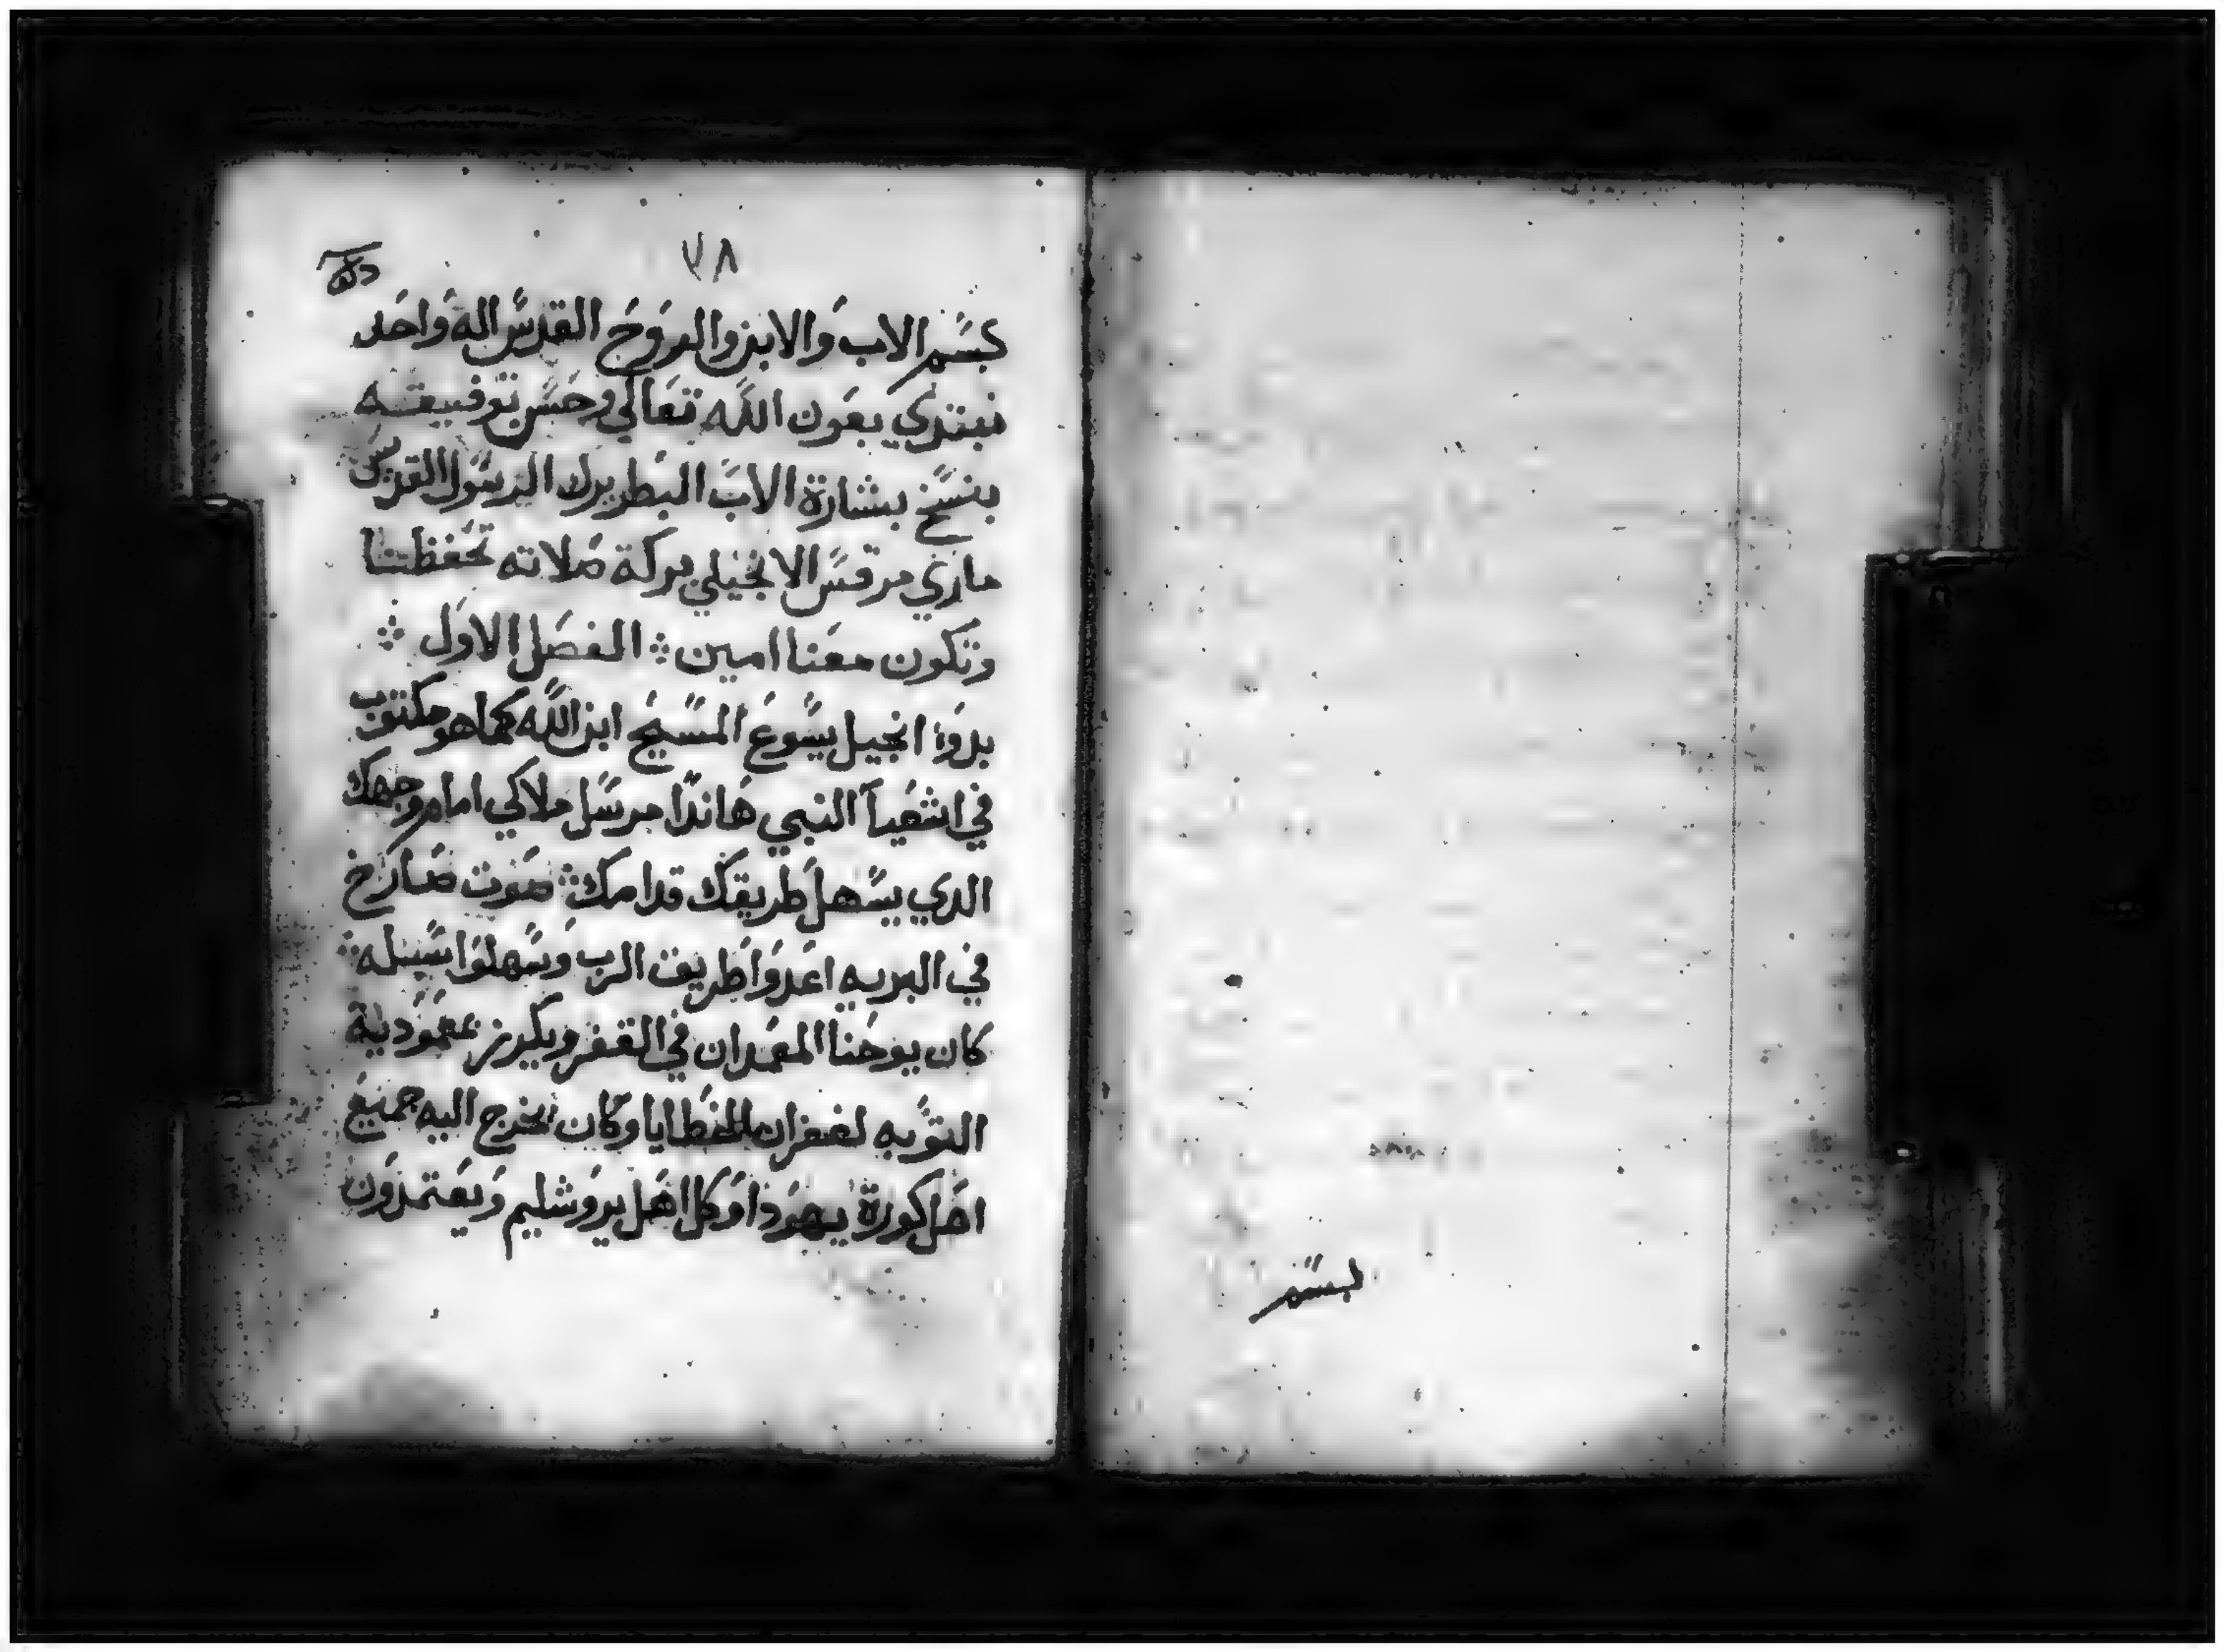 لبسم
٧٨
بسم الاب والابن والروح القدس اله واحد
نبتدي بعون الله تعالي وحسن توفيقه
بنسخ بشارة الاب البطريرك الرسول القديس
ماري مرقس الانجيلي بركة صلاته تحفظنا
وتكون معنا امين ܀ الفصل الاول ܀
بدوا انجيل يسوع المسيح ابن الله كما هو مكتوب
في اشعيا النبي هانذا مرسل ملاكي امام وجهك
الدي يسهل طريقك قدامك ܀ صوت صارخ
في البريه اعدوا طريق الرب وسهلوا سبله ܀
كان يوحنا المعمدان في القفر ويكرز بمعمودية
التوبه لغفران الخطايا وكان يخرج اليه جميع
اهل كورة يهودا وكل اهل يروشليم ويعتمدون